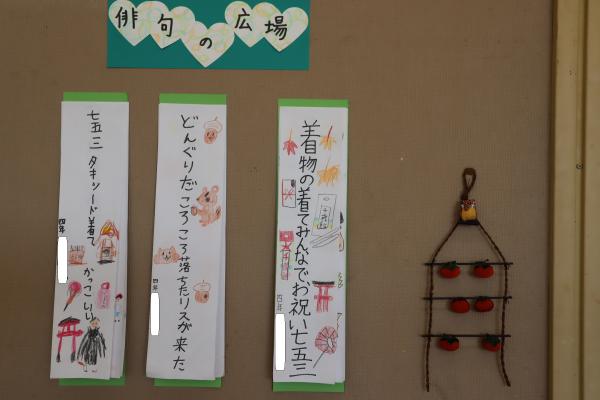 俳句の広場
着物の着てみんなでお祝い七五三
四年
どんぐりだころころ落ちたリスが来た
四年
七五三タキシード着てかっこいい
四年